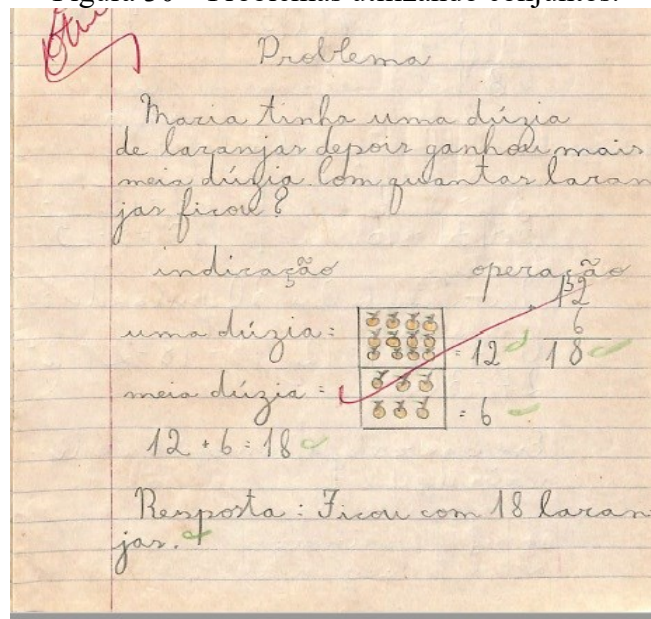 Problema
Maria tinha uma dúzia
de laranjas depois ganhou mais
meia dúzia. Com quantas laran
jas ficou?
indicação operação
12
uma dúzia: = 12 6
18
meia dúzia = = 6
12 + 6 = 18
Resposta: Ficou com 18 laran
jas.